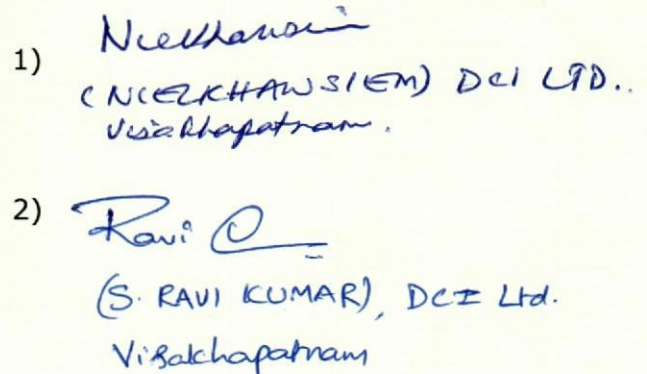 1) Nielkhansiem
(NIELKHANSIEM) DCI LTD.
Visakhapatnam.
2) Ravi
(S. RAVI KUMAR), DCI Ltd.
Visakhapatnam